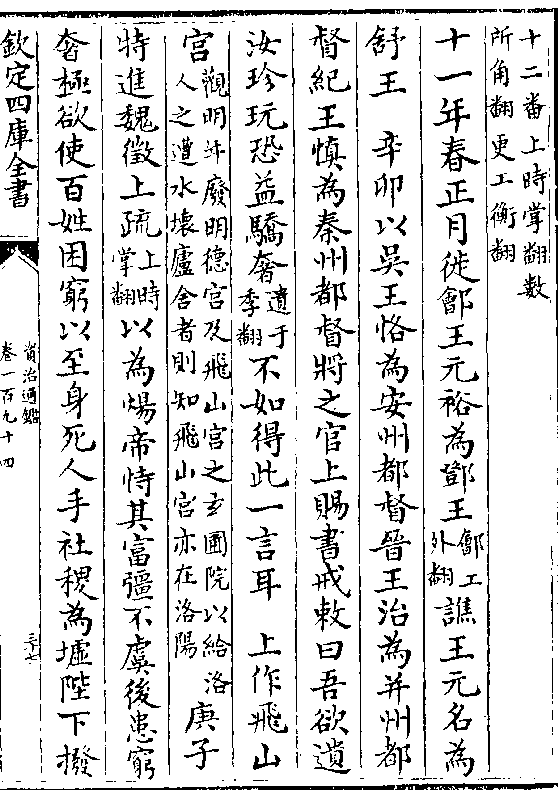 十二番上時掌翻數
所角翻更工衡翻
十一年春正月徙鄶王元裕為鄧王鄶工
外翻譙王元名為
舒王 辛卯以吳王恪為安州都督晉王治為并州都
督紀王慎為秦州都督將之官上賜書戒敕曰吾欲遺
汝珍玩恐益驕奢遺于
季翻不如得此一言耳 上作飛山
宮觀明年廢明德宮及飛山宮之玄圃院以給洛
人之遭水壞廬舍者則知飛山宮亦在洛陽庚子
特進魏徵上疏上時
掌翻以為煬帝恃其富彊不虞後患窮
奢極欲使百姓困窮以至身死人手社稷為墟陛下撥
欽定四庫全書
資治通鑑
卷一百九十四
三十七